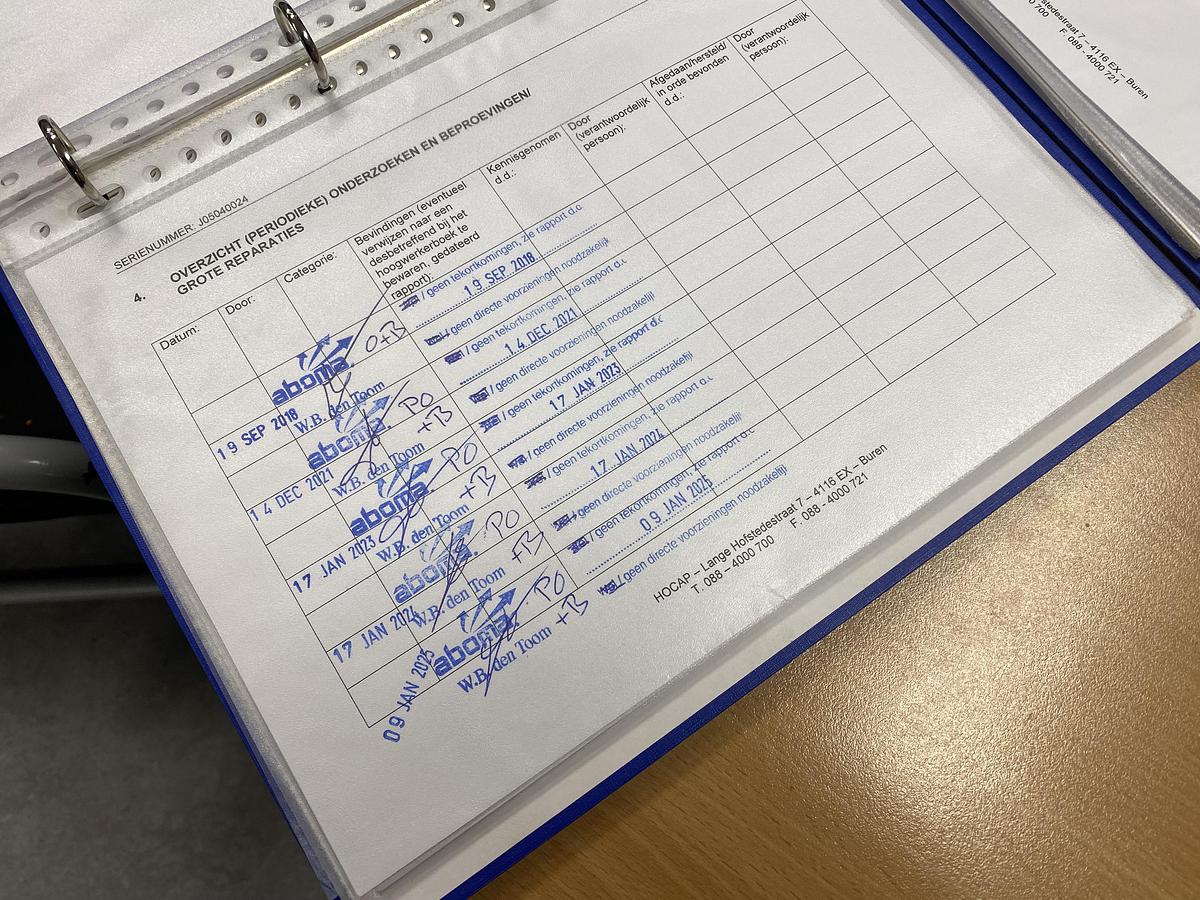 ofstedestraat 7 – 4116 EX – Buren
0 700 F. 088 - 4000 721
SERIENUMMER: J05040024
4. OVERZICHT (PERIODIEKE) ONDERZOEKEN EN BEPROEVINGEN/
GROTE REPARATIES
Datum:
Door:
Categorie:
Bevindingen (eventueel
verwijzen naar een
desbetreffend bij het
hoogwerkerboek te
bewaren, gedateerd
rapport):
Kennisgenomen
d.d.:
Door
(verantwoordelijk
persoon):
Afgedaan/hersteld/
in orde bevonden
d.d.:
Door
(verantwoordelijk
persoon):
19 SEP 2018
aboma
W.B. den Toom
O+B
/ geen tekortkomingen, zie rapport d.d
19 SEP 2018
/ geen directe voorzieningen noodzakelijk
14 DEC 2021
aboma
W.B. den Toom
PO
+B
/ geen tekortkomingen, zie rapport d.d
14 DEC 2021
/ geen directe voorzieningen noodzakelijk
17 JAN 2023
aboma
W.B. den Toom
PO
+B
/ geen tekortkomingen, zie rapport d.d
17 JAN 2023
/ geen directe voorzieningen noodzakelijk
17 JAN 2024
aboma
W.B. den Toom
PO
+B
/ geen tekortkomingen, zie rapport d.d
17 JAN 2024
/ geen directe voorzieningen noodzakelijk
09 JAN 2025
aboma
W.B. den Toom
PO
+B
/ geen tekortkomingen, zie rapport d.d
09 JAN 2025
/ geen directe voorzieningen noodzakelijk
HOCAP – Lange Hofstedestraat 7 – 4116 EX – Buren
T. 088 – 4000 700 F. 088 - 4000 721